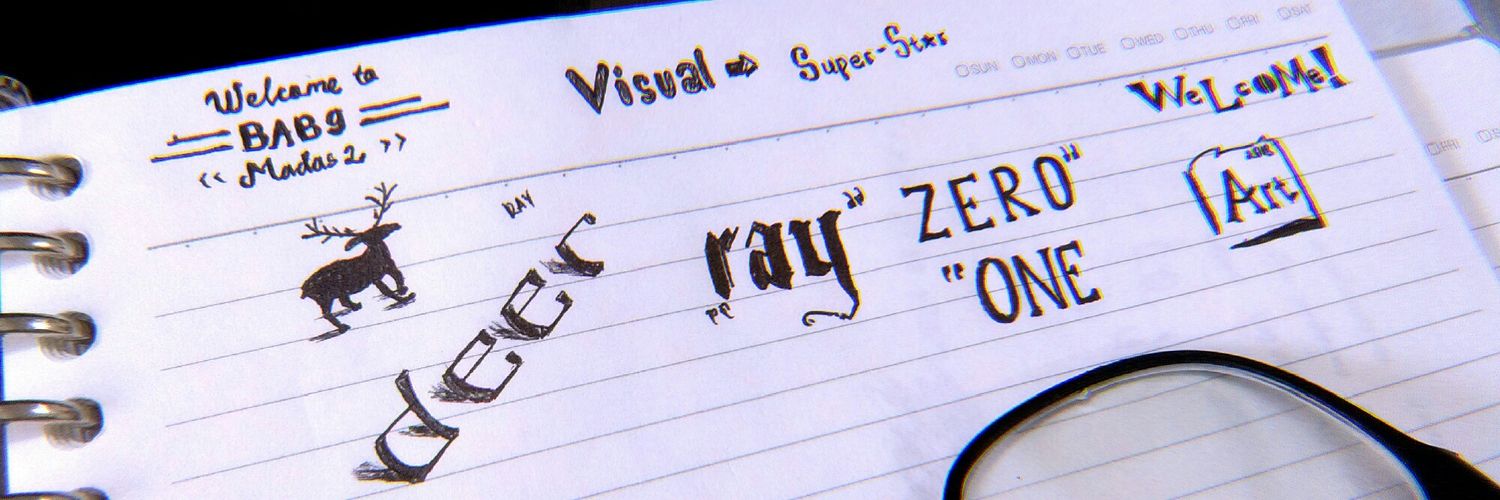 Welcome to
BAB9
<< Madas2 >>
Visual ➡ Super-Star
SUN MON TUE WED THU FRI SAT
WeLcoMe!
RAY
deer
"ray"
ZERO"
"ONE
Art
FRI